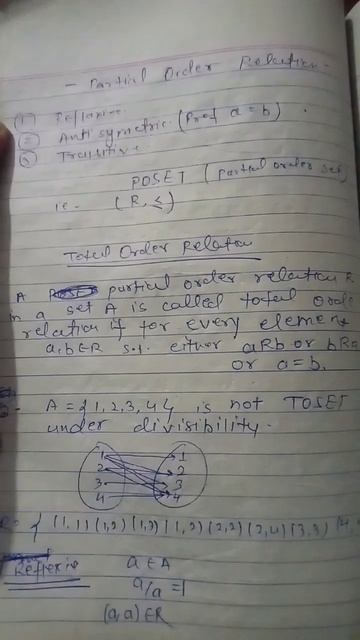 - Partial Order Relation -
(1) Reflexive.
(2) Anti symetric. (Prof a = b)
(3) Transitive.
POSET (partial order set)
i.e. (R, ≤)
Total Order Relation
A partial order relation R
in a set A is called total orde
relation if for every element
a,b∈R s.t. either aRb or bRa
or a = b.
A = {1, 2, 3, 4} is not TOSET
under divisibility.
1 1
2 2
3 3
4 4
R = { (1,1) (1,2) (1,3) (1,2) (2,2) (2,4) (3,3)
Reflexive a ∈ A
a/a = 1
(a,a) ∈ R